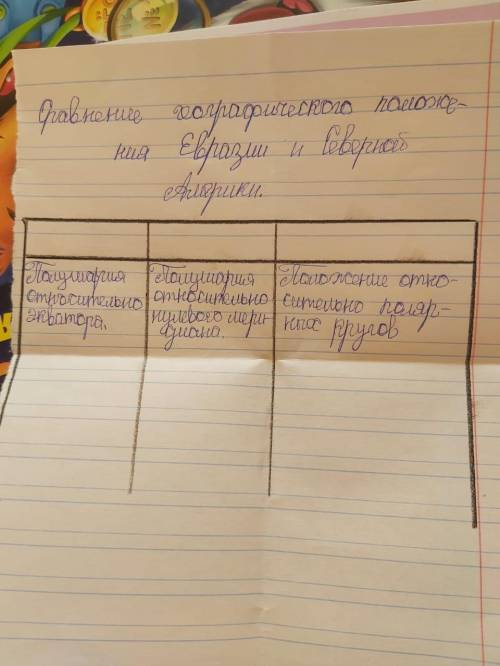 Сравнение географического положе-
ния Евразии и Северной
Америки.
Полушария
относительно
экватора.
Полушария
относительно
нулевого мери
диана.
Положение отно-
сительно поляр-
ных кругов